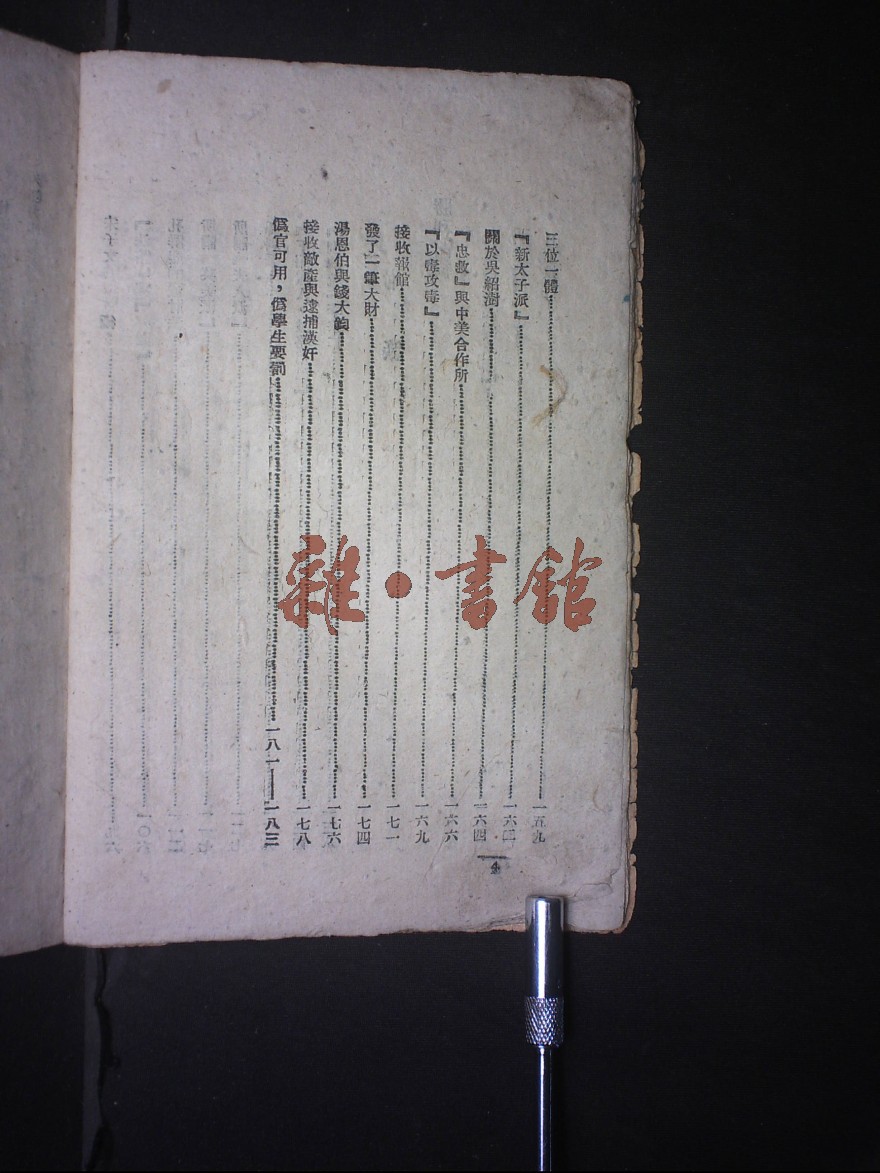 三位一體……一五九
『新太子派』……一六二
關於吳紹澍……一六四
『忠救』與中美合作所……一六六
『以毒攻毒』……一六九
接收報館……一七一
發了一筆大財……一七四
湯恩伯與錢大鈞……一七六
接收敵產與逮捕漢奸……一七八
僞官可用，僞學生要罰……一八一——一八三
4
雜·書館